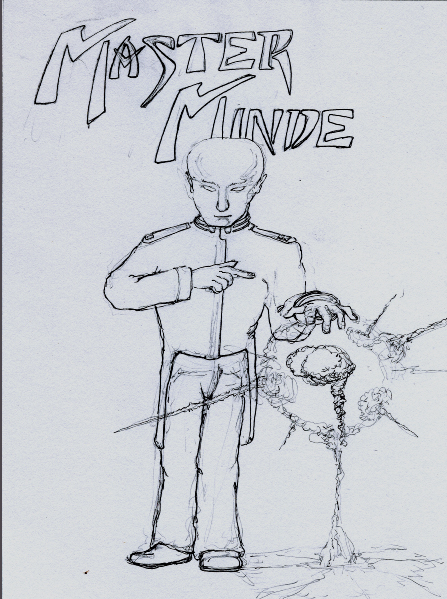 MASTER
MINDE